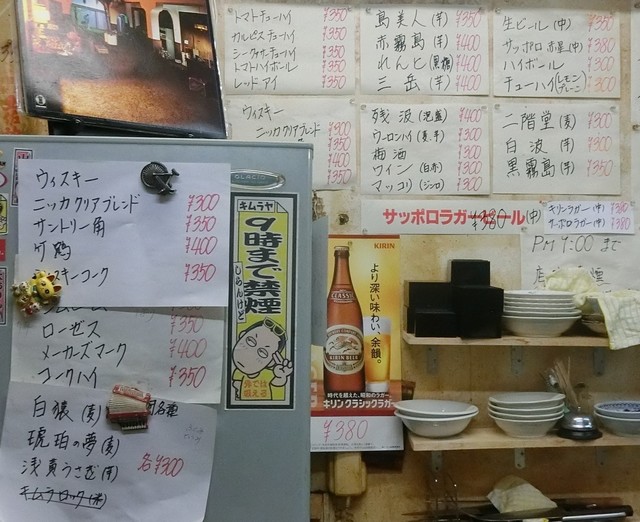 トマトチューハイ ¥350
カルピスチューハイ ¥350
シークヮサーチューハイ ¥350
トマトハイボール ¥350
レッドアイ ¥350
島美人(芋) ¥350
赤霧島(芋) ¥400
れんと(黒糖) ¥400
三岳(芋) ¥400
生ビール(中) ¥350
サッポロ赤星(中) ¥380
ハイボール ¥300
チューハイ(レモン プレーン) ¥300
ウィスキー
ニッカクリアブレンド ¥300
残波(泡盛) ¥400
ウーロンハイ ¥300
梅酒 ¥300
ワイン(白赤) ¥300
マッコリ(ジンロ) ¥300
二階堂(麦) ¥300
白波(芋)
黒霧島(芋) ¥350
ウィスキー
ニッカクリアブレンド ¥300
サントリー角 ¥350
竹鶴 ¥400
スキーコーク ¥350
GLACIO
キムラヤ
9時まで禁煙
しらんけど
外では
吸える
サッポロラガービール(中)
¥380
キリンラガー(中) ¥380
サッポロラガー(中) ¥380
PM 9:00 まで
KIRIN
より深い味わい、余韻。
CLASSIC
KIRIN BEER
時代を超えた、昭和のラガー。
キリンクラシックラガー
¥380
ローゼス ¥350
メーカーズマーク ¥400
コークハイ ¥350
白猿(麦)
琥珀の夢(麦)
浅黄うさぎ(芋) 各¥300
キムラロック(米)